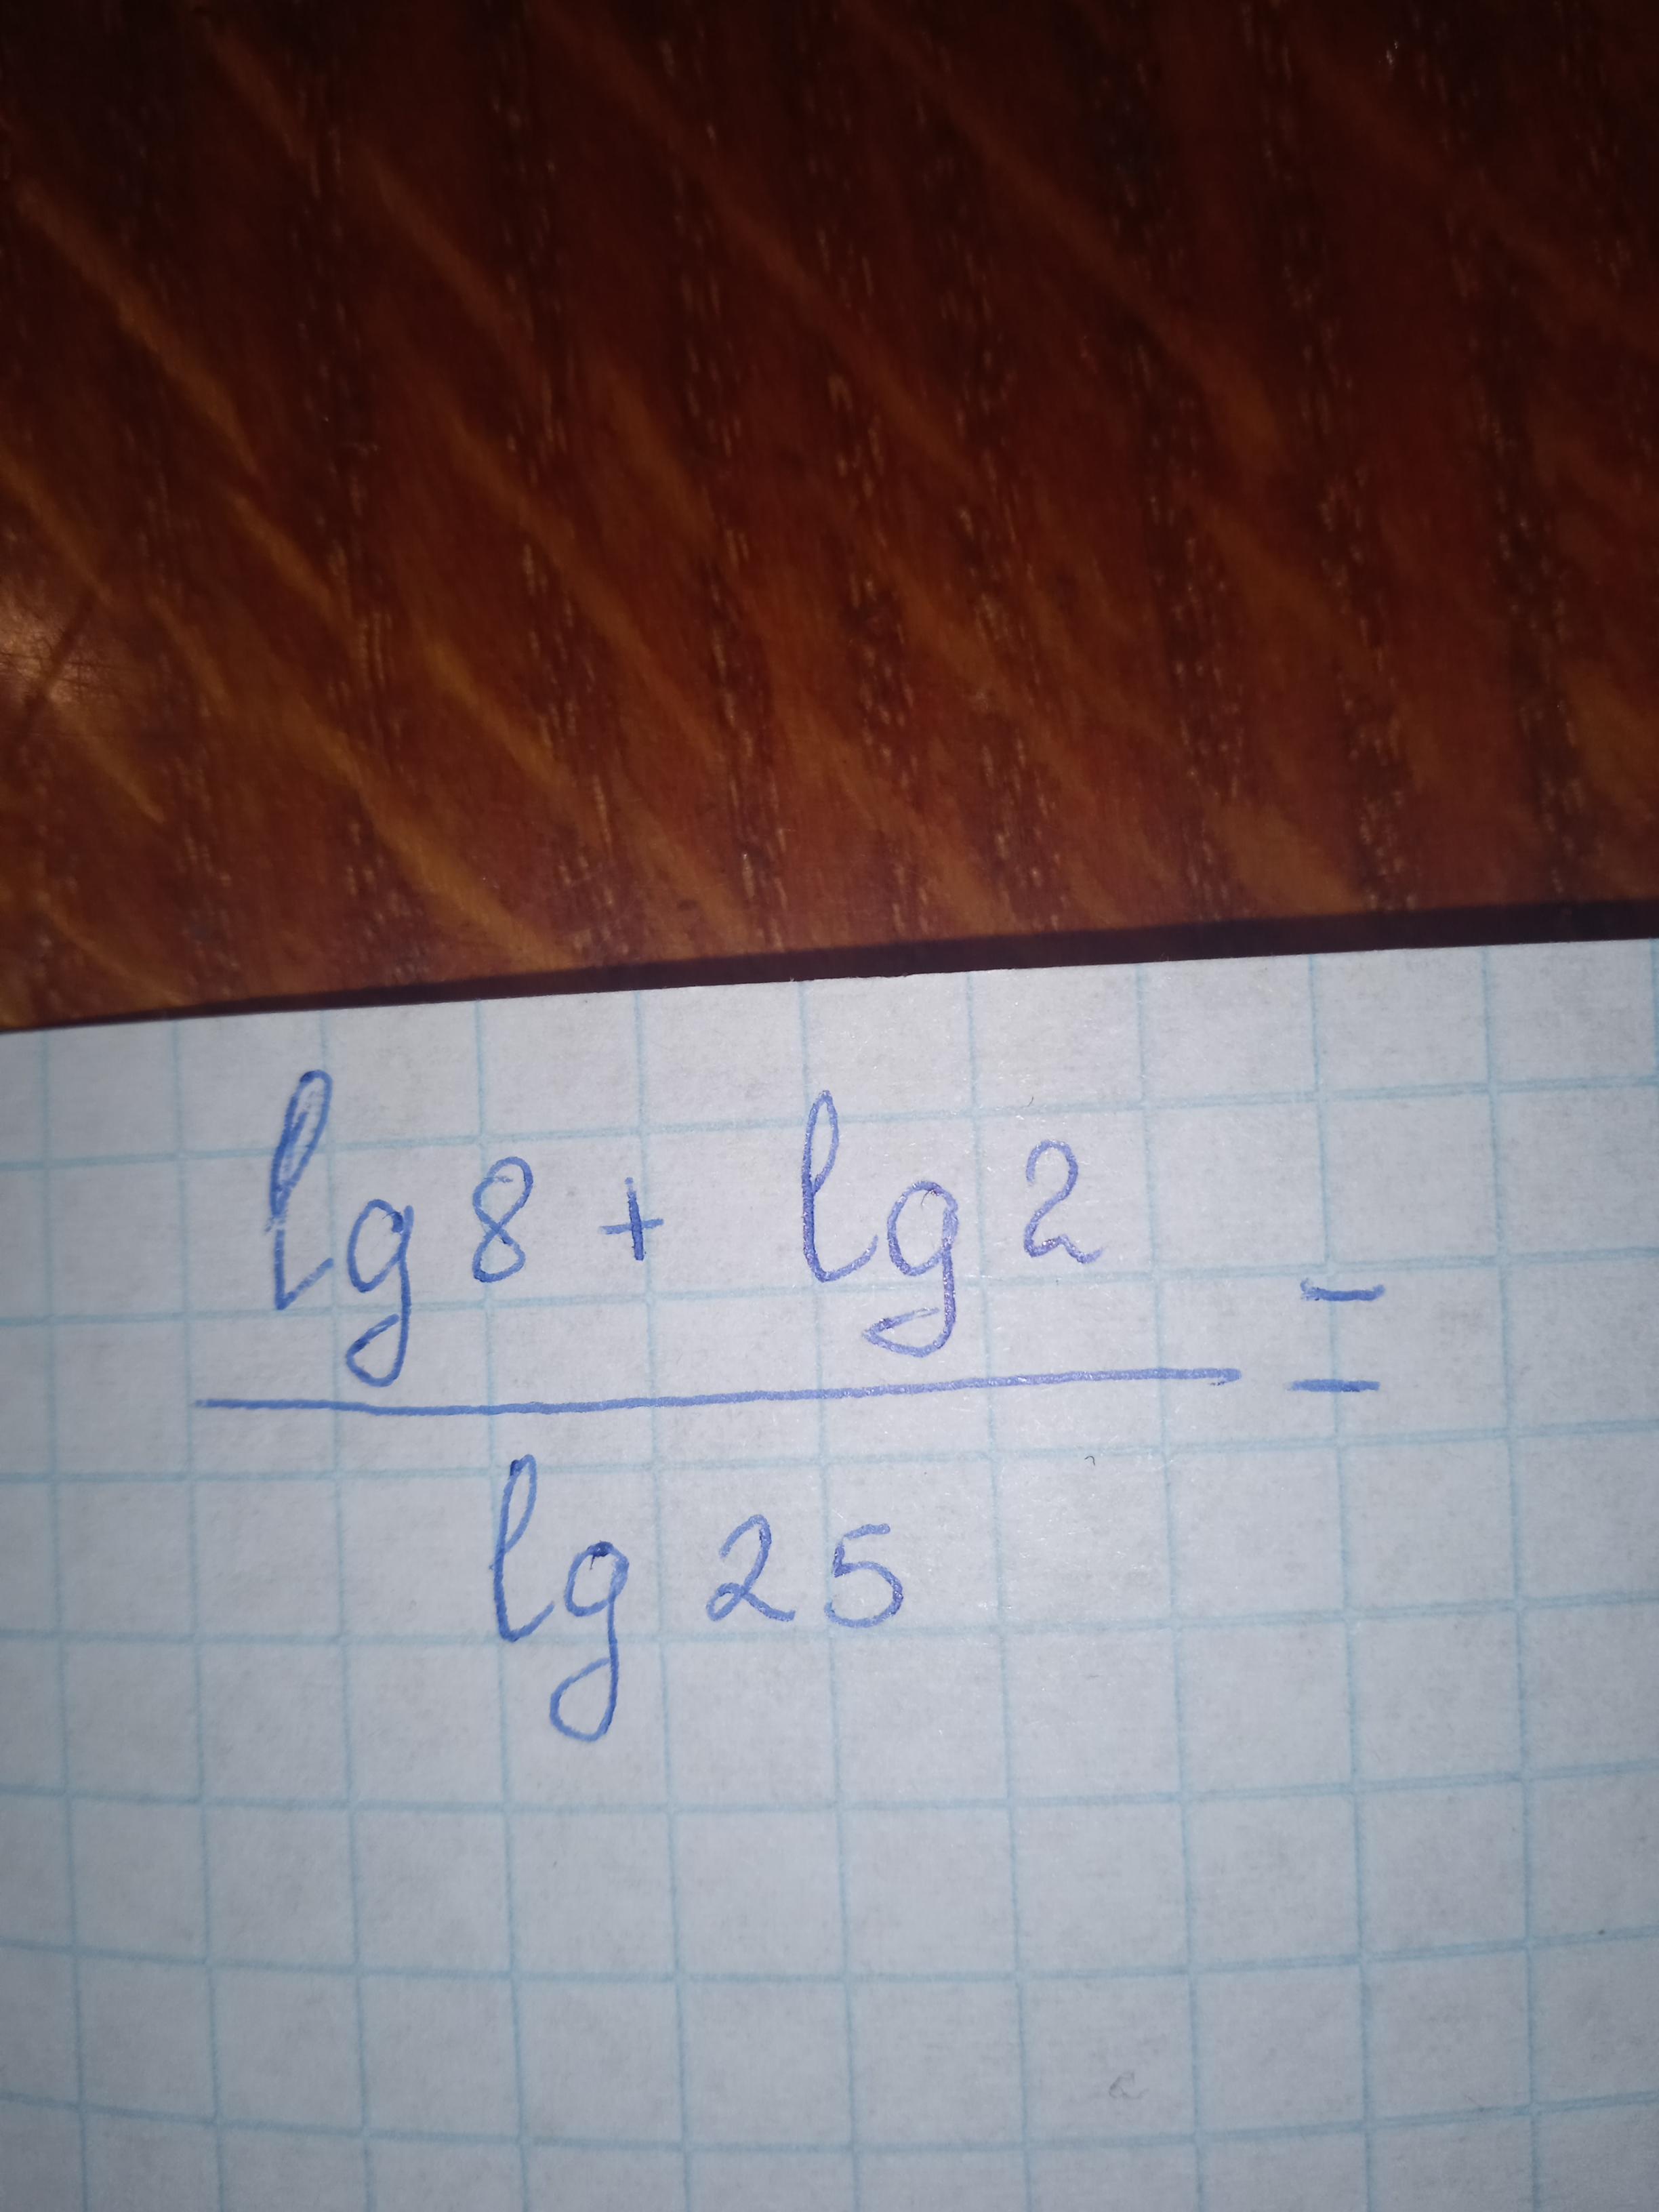 lg 8 + lg 2 =
lg 25